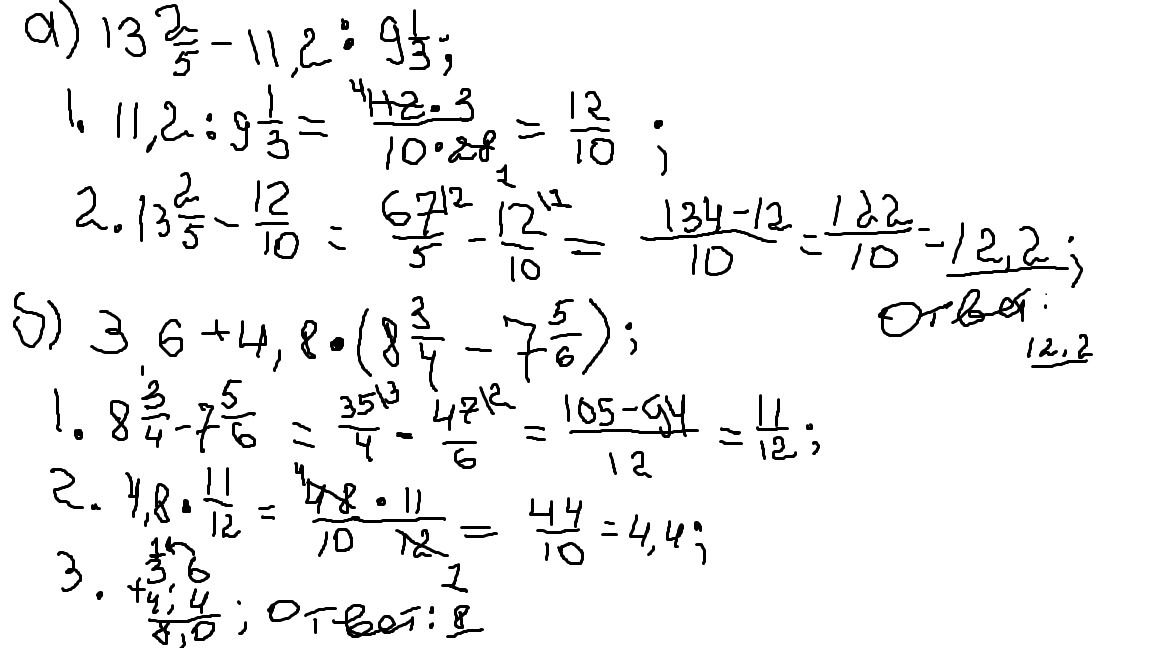 а) 13 2/5 - 11,2 : 9 1/3;
1. 11,2 : 9 1/3 = (⁴112 · 3)/(10 · 28 ₁) = 12/10 ;
2. 13 2/5 - 12/10 = 67\2/5 - 12\1/10 = (134 - 12)/10 = 122/10 = 12,2;
Ответ: 12,2
б) 3,6 + 4,8 · (8 3/4 - 7 5/6);
1. 8 3/4 - 7 5/6 = 35\3/4 - 47\2/6 = (105 - 94)/12 = 11/12;
2. 4,8 · 11/12 = (⁴48 · 11)/(10 12 ₁) = 44/10 = 4,4;
3. ¹3,6 + 4,4 8,0 ; Ответ: 8